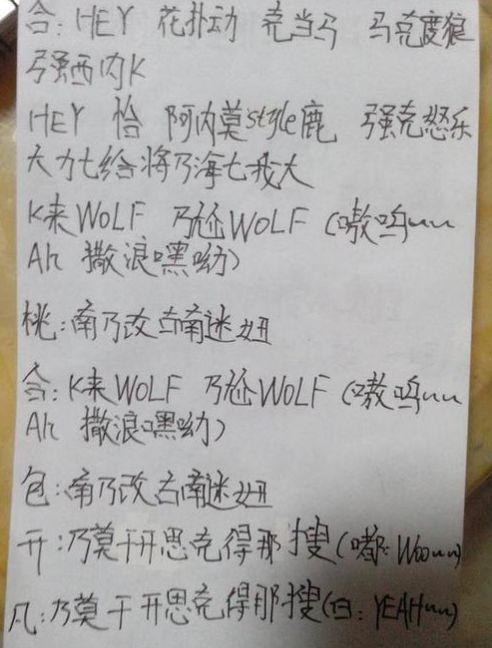 合: HEY 花扑动 克当马 马克度狼
弓强西内K
HEY 恰 阿内莫style鹿 弓强克怒乐
大力七给将乃海七我大
K来WOLF 乃尬WOLF (嗷呜~~
Ah 撒浪嘿呦)
桃: 南乃改古南迷妞
合: K来WOLF 乃尬WOLF (嗷呜~~
Ah 撒浪嘿呦)
包: 南乃改古南迷妞
开: 乃莫干开思克得那搜(嘟: Woo~~)
凡: 乃莫干开思克得那搜(白: YEAH~~)